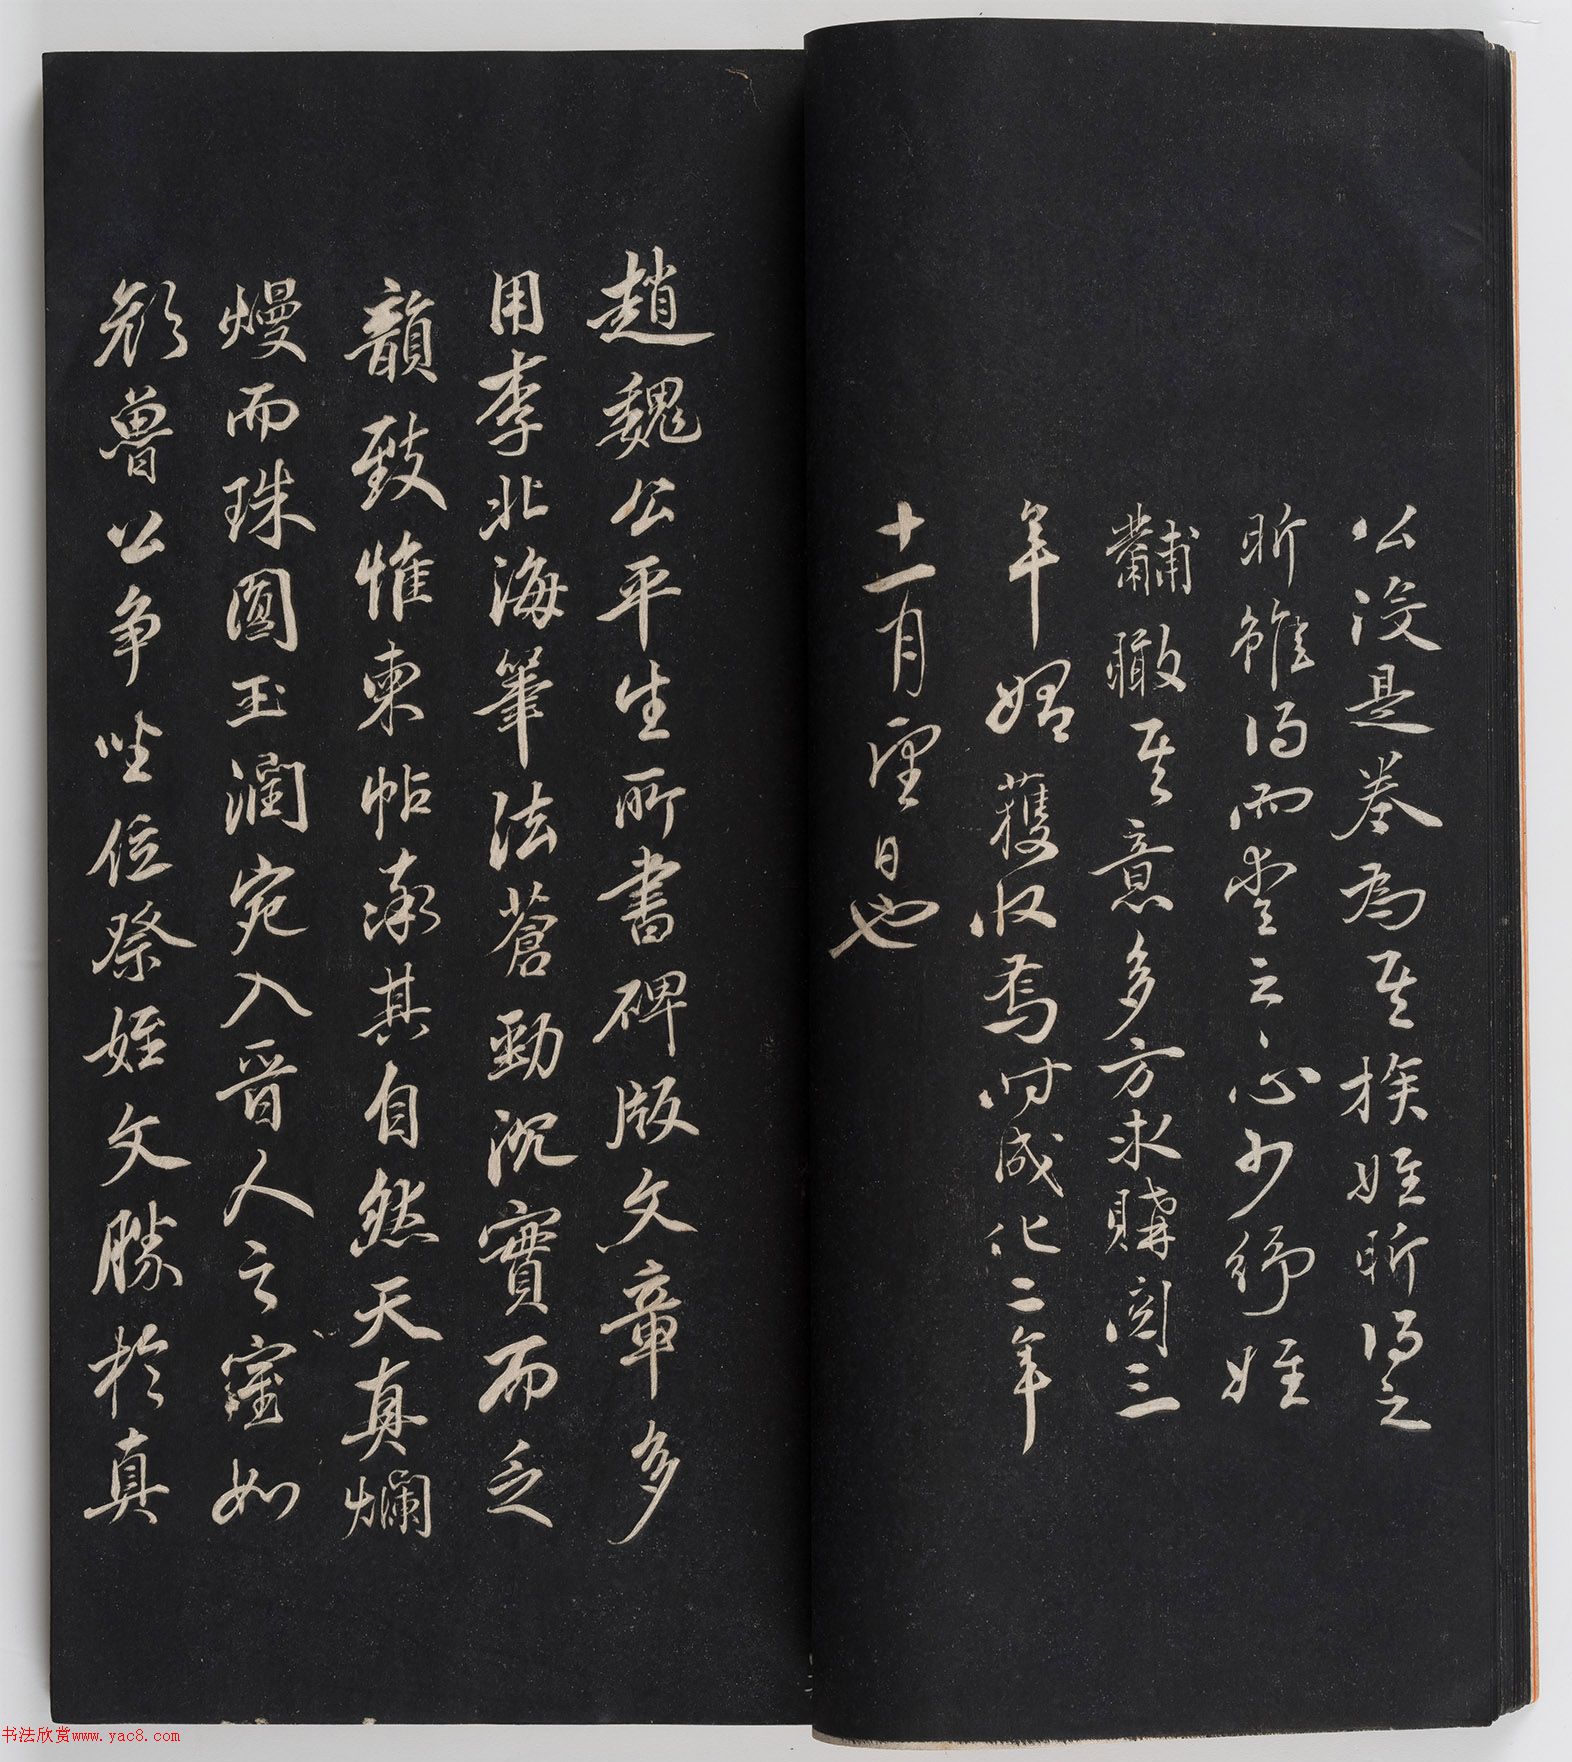 公没是卷为其族姪昕得之
昕雖得而愛之心少紓姪
黼瞰其意多方求購閲三
年始獲收焉時成化二年
十一月望日也
趙魏公平生所書碑版文章多
用李北海筆法蒼勁沉實而乏
韻致惟柬帖率其自然天真爛
熳而珠圓玉潤宛入晋人之室如
顔魯公争坐位祭姪文勝於真
书法欣赏www.yac8.com